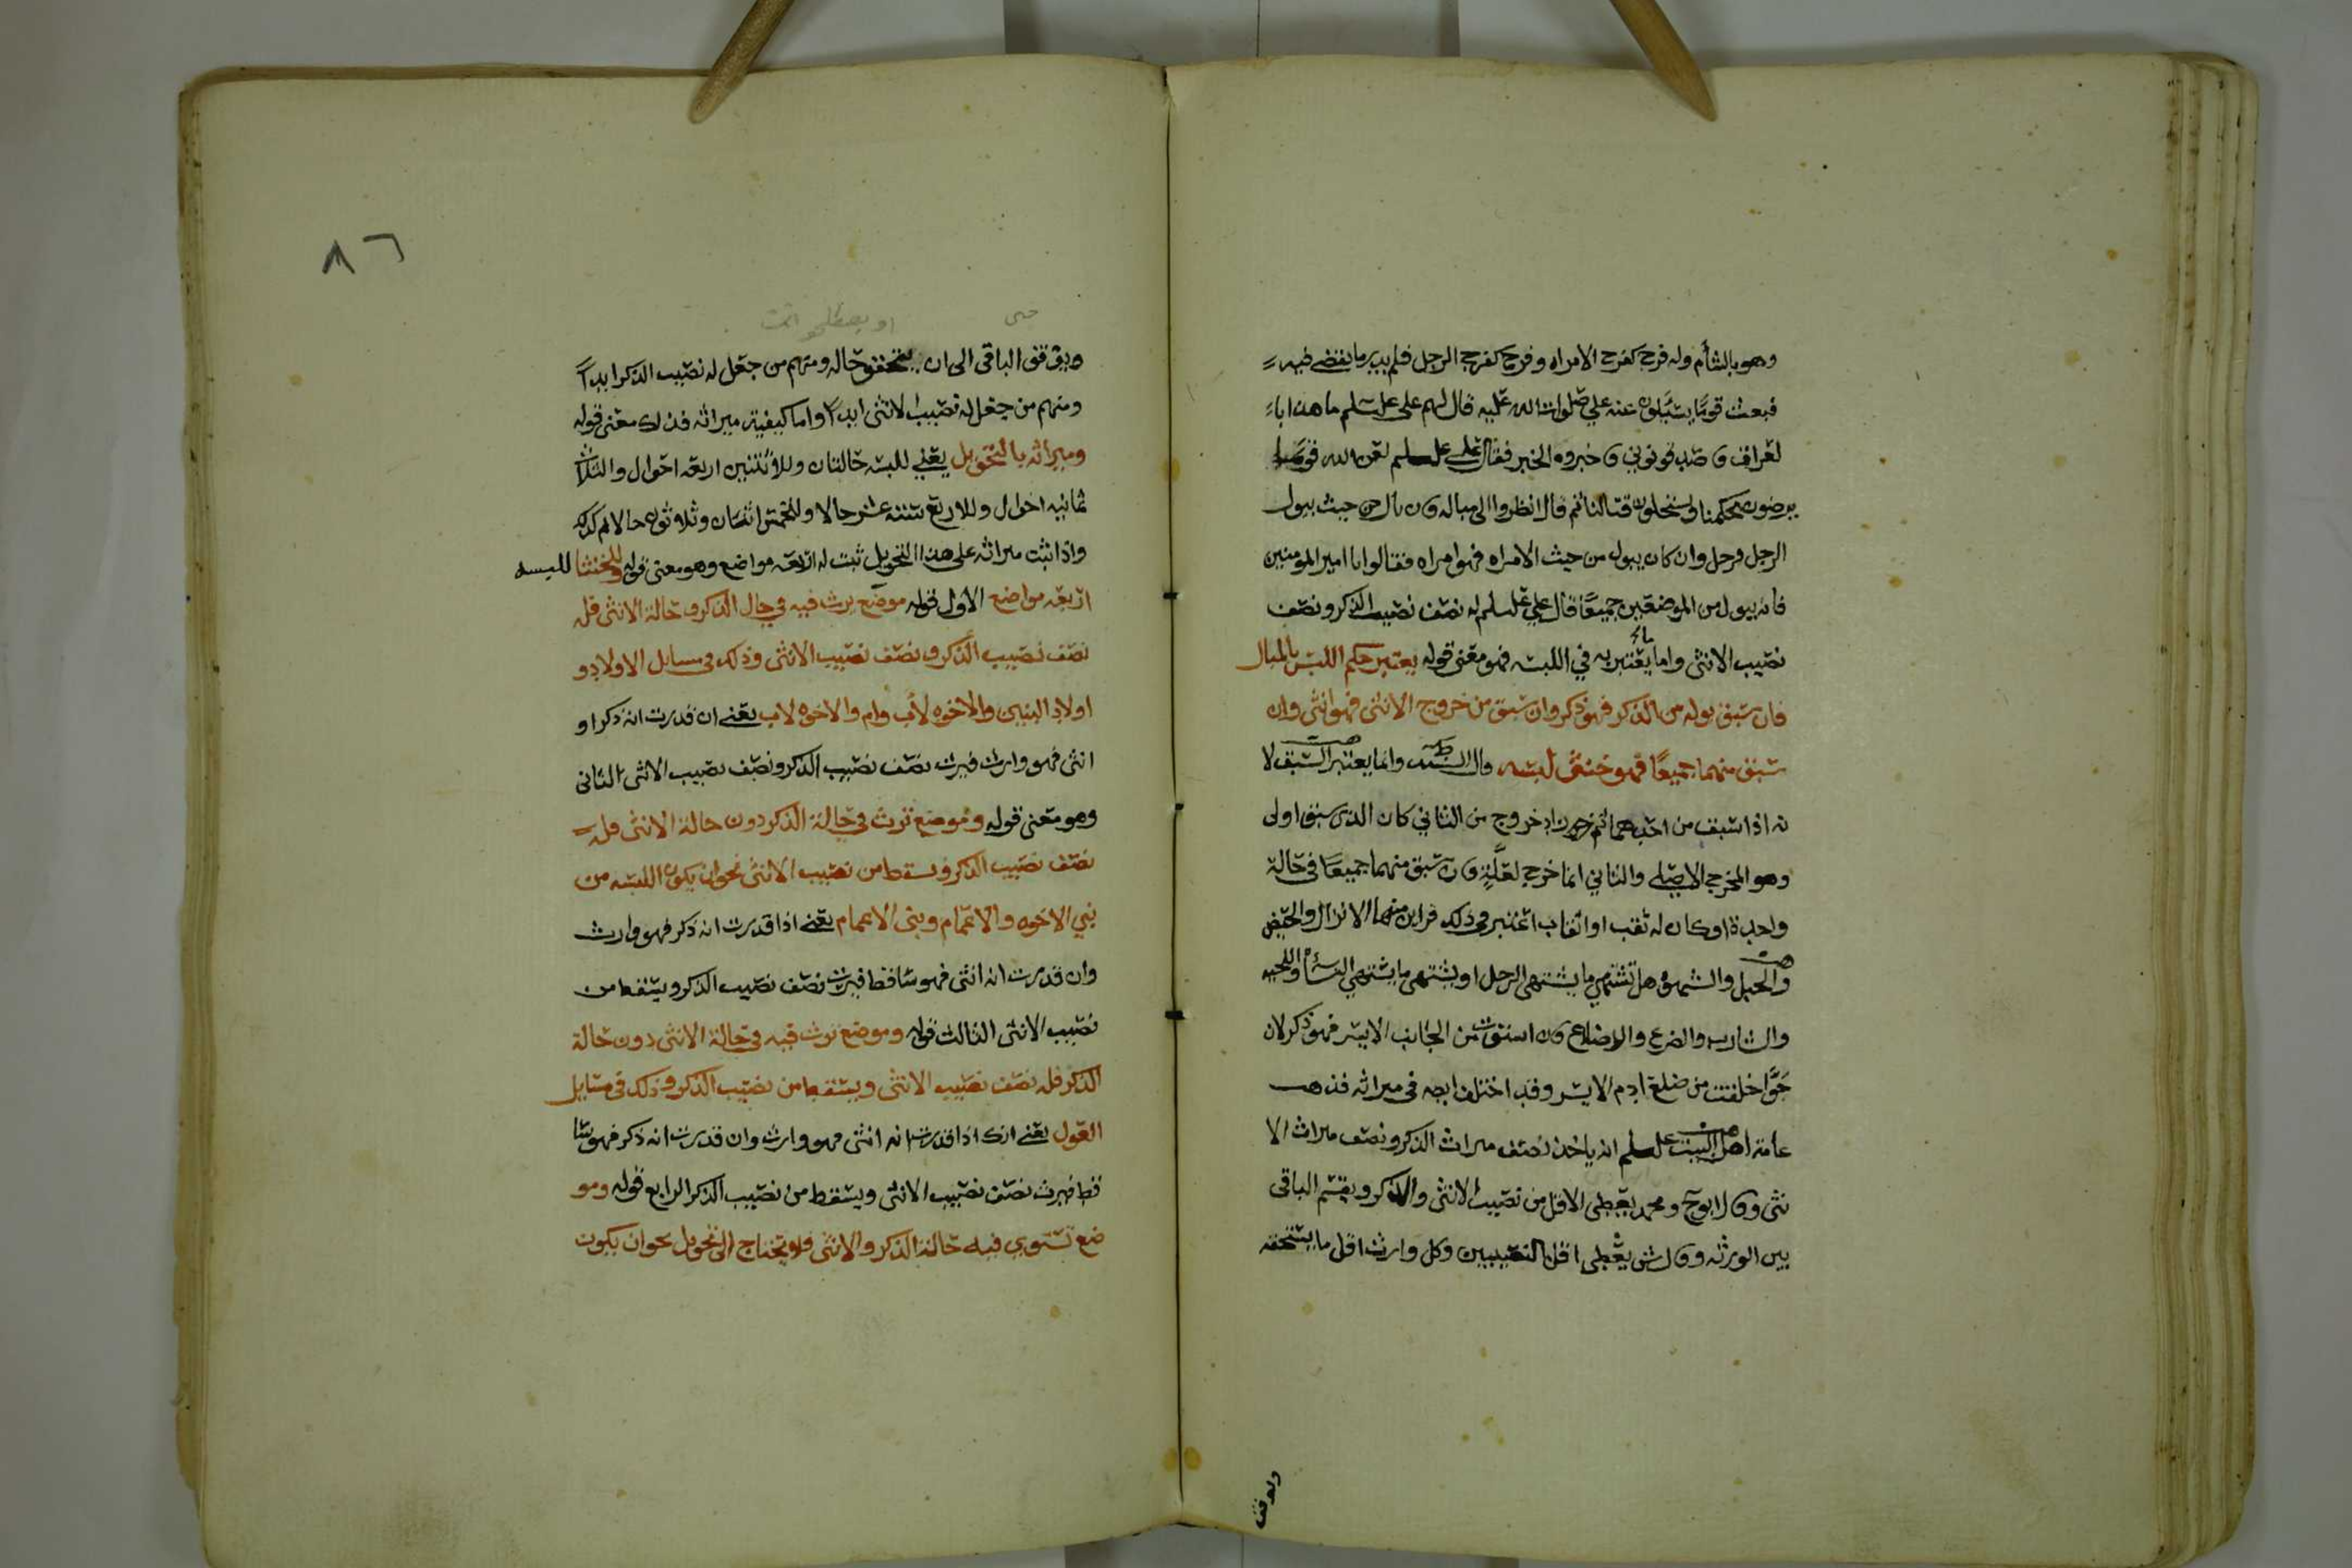 وهو بالشأم وله فرج كفرج الامراه وفرج كفرج الرجل فلم يدر ما يقضي فيه
فبعث قومًا يسئلون عنه علي صلوات الله عليه قال لهم علي علسلم ما هذا با
لعراق و صدقوني و خبروه الخبر فقال علي علسلم لعن الله قومًا
يرضون بحكمنا ويستحلون قتالنا ثم قال انظروا الى مباله فان بال من حيث يبول
الرجل فرجل وان كان يبول من حيث الامراه فهو امراه فقالوا يا امير المومنين
فانه يبول من الموضعين جميعًا قال علي علسلم له نصف نصيب الذكر ونصف
نصيب الانثى واما ما يعتبر به في اللبسه فهو معنى قوله يعتبر حكم اللبس بالمبال
فان سبق بوله من الذكر فهو ذكر وان سبق من خروج الانثى فهو انثى وان
سبق منهما جميعًا فهو خنثى لبسه قال وانما يعتبر السبق لا
نه اذا سبق من احدهما ثم خروج من الثاني كان الذي سبق اولى
وهو المخرج الاصلي والثاني انما خرج لعلّةٍ وان سبق منهما جميعًا في حالة
واحدة او كان له ثقب او اثقاب اعتبر في ذلك قراين منها الانزال والحيض
والحبل والشهوه هل تشتهي ما يشتهي الرجل او يشتهي ما يشتهي النسأ واللحيه
والشارب والضرع والاضلاع فان استوت من الجانب الايسر فهو ذكر لان
حوّا خلقت من ضلع ادم الايسر وقد اختلف ايضه في ميراثه فذهب
عامة اهل البيت علسلم انه ياخذ نصف ميراث الذكر ونصف ميراث الا
نثى وقال ابوح ومحمد يعطى الاقل من نصيب الانثى والذكر ويقسم الباقى
بين الورثه وقال ش يعطى اقل النصيبين وكل وارث اقل ما يستحقه
ويوقف
٨٦
حتى او يصطلحوا
ويوقف الباقى الى ان يتحقق حاله ومنهم من جعل له نصيب الذكر ابدًا
ومنهم من جعل له نصيب الانثى ابدًا واما كيفية ميراثه فذلك معنى قوله
وميراثه بالتحويل يعني للبسه حالتان وللاثنتين اربعه احوال والثلاث
ثمانيه احوال وللاربع ستة عشر حالا وللخمس اثنان وثلاثون حالا ثم كذلك
واذا ثبت ميراثه على هذا التحويل ثبت له اربعه مواضع وهو معنى قوله وللخنثا اللبسه
اربعه مواضع الاول قوله موضع يرث فيه في حال الذكر وحالة الانثى فله
نصف نصيب الذكر ونصف نصيب الانثى وذلك في مسايل الاولاد و
اولاد البنين والاخوه لأب وام والاخوه لاب يعني ان قدرت انه ذكر او
انثى فهو وارث فيرث نصف نصيب الذكر ونصف نصيب الانثى الثاني
وهو معنى قوله وموضع ترث في حالة الذكر دون حالة الانثى فله
نصف نصيب الذكر ويسقط من نصيب الانثى نحو ان يكون اللبسه من
بني الاخوه والاعمام وبنى الاعمام يعني اذا قدرت انه ذكر فهو وارث
وان قدرت انه انثى فهو ساقط فيرث نصف نصيب الذكر ويسقط من
نصيب الانثى الثالث قوله وموضع ترث فيه في حالة الانثى دون حالة
الذكر فله نصف نصيب الانثى ويسقط من نصيب الذكر وذلك في مسايل
العول يعني انك اذا قدرت انه انثى فهو وارث وان قدرت انه ذكر فهو سا
قط فيرث نصف نصيب الانثى ويسقط من نصيب الذكر الرابع قوله ومو
ضع تستوي فيه حالة الذكر والانثى فلا يحتاج الى تحويل نحو ان يكون